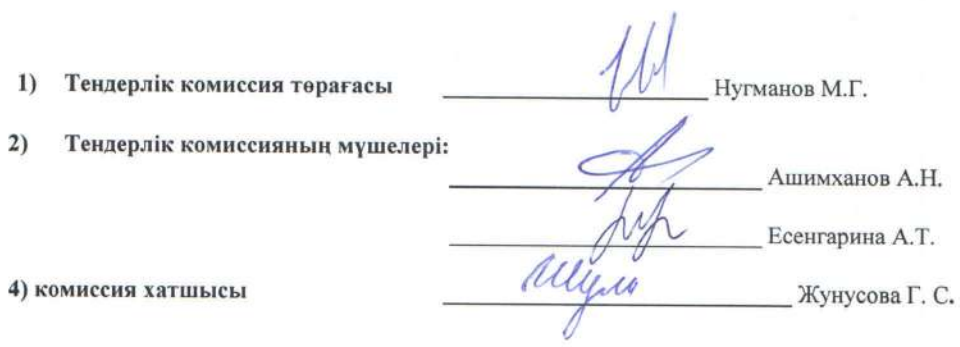 1) Тендерлік комиссия төрағасы ____________ Нугманов М.Г.
2) Тендерлік комиссияның мүшелері:
____________ Ашимханов А.Н.
____________ Есенгарина А.Т.
4) комиссия хатшысы ____________ Жунусова Г. С.